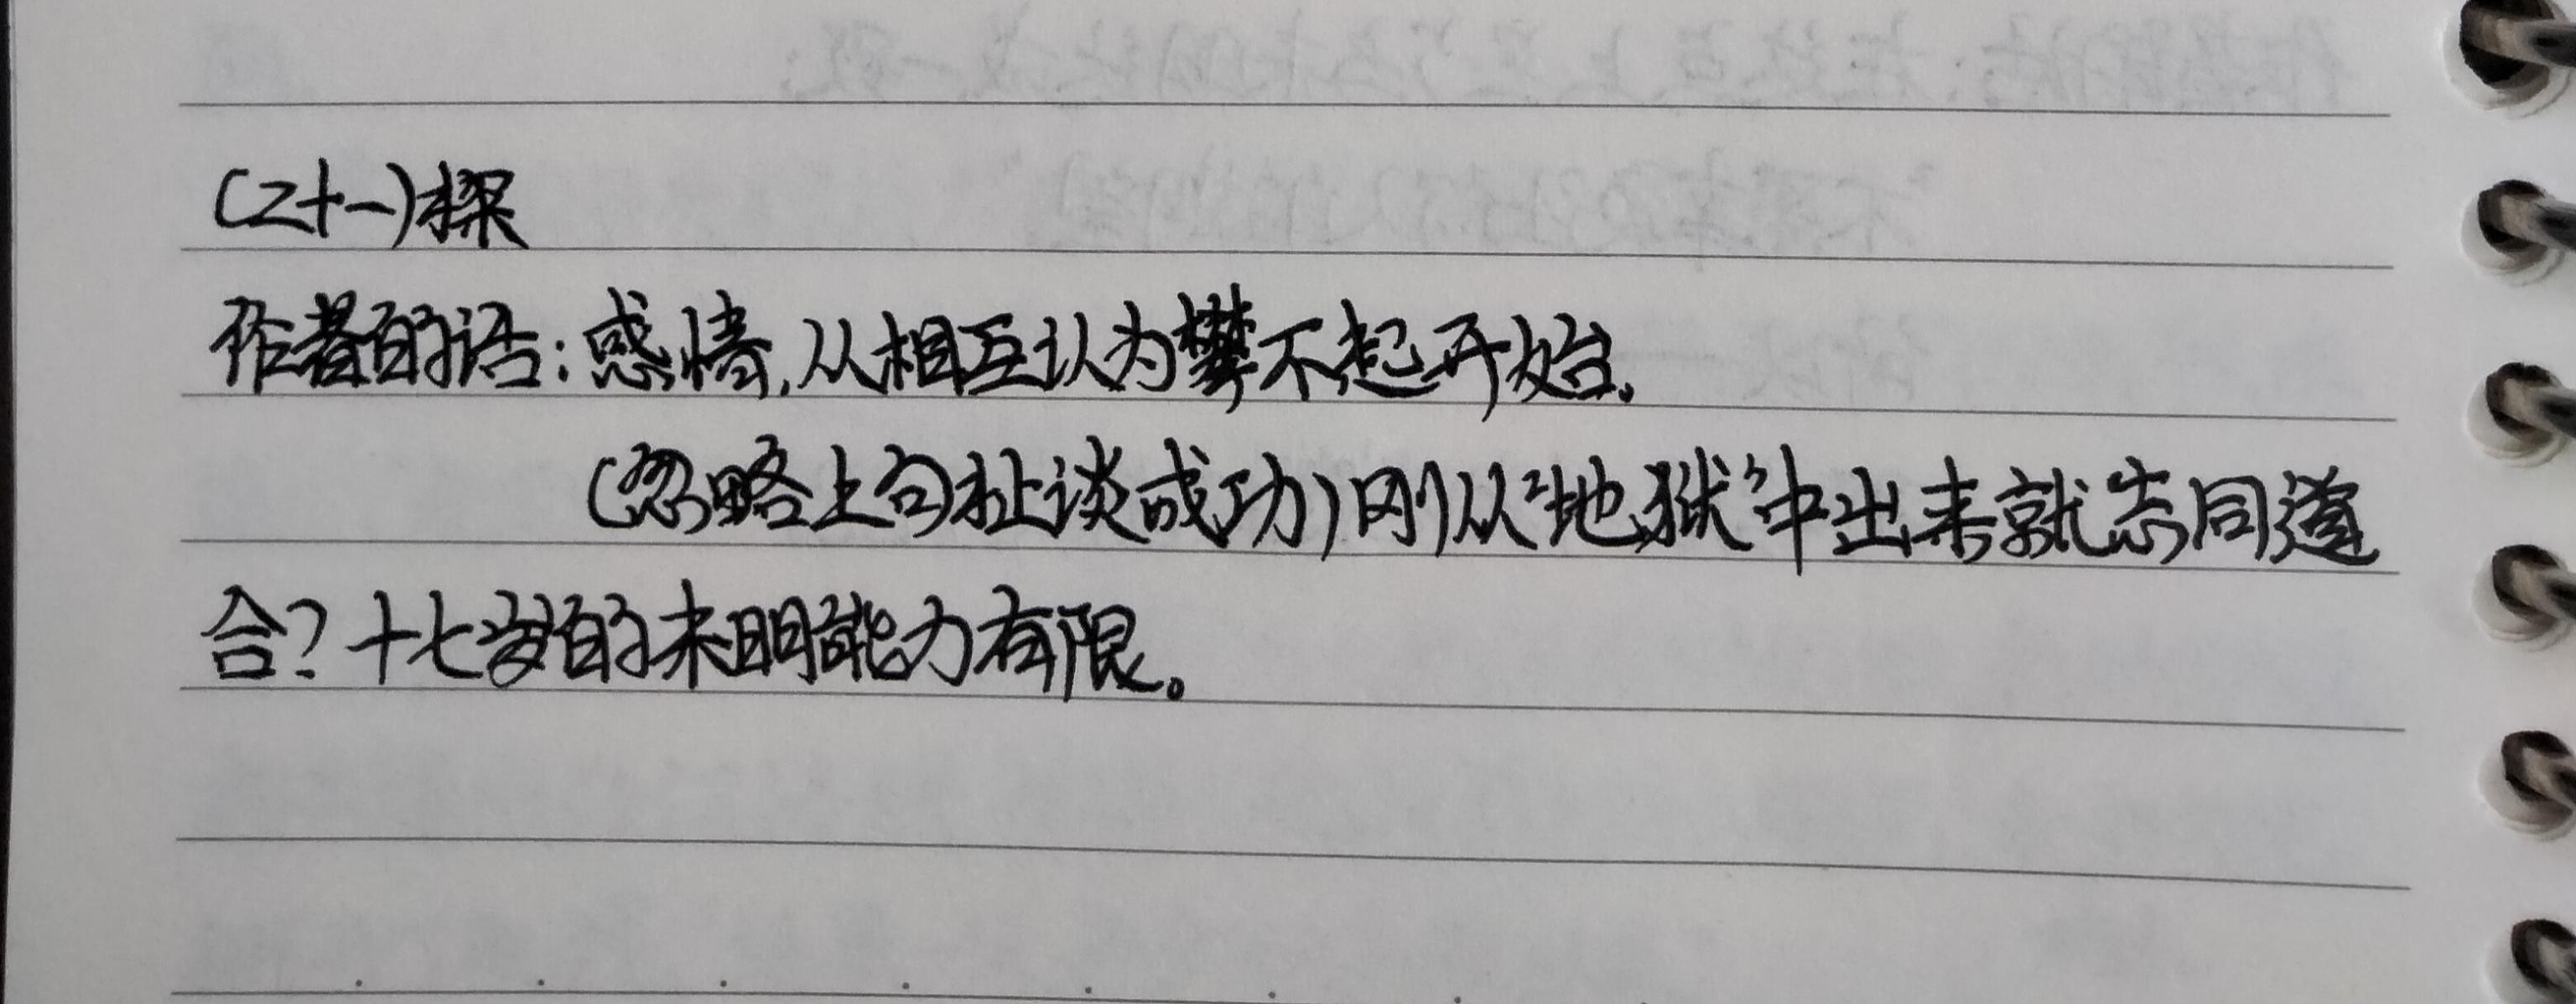 (二十一)探
作者的话:感情,从相互认为攀不起开始。
(忽略上句扯谈成功)刚从“地狱”中出来就志同道
合?十七岁的未明能力有限。